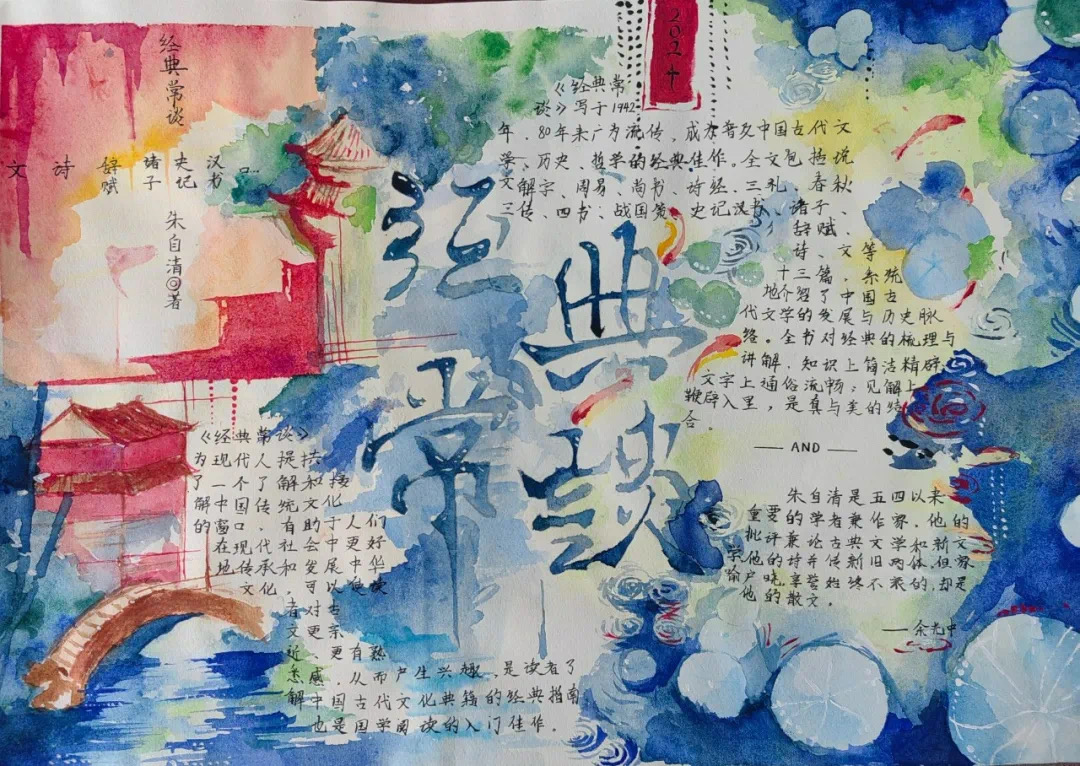 经典常谈
文 诗 辞赋 诸子 史记 汉书
朱自清◎著
2024
经典常谈
《经典常
谈》写于1942
年，80年来广为流传，成为普及中国古代文
学、历史、哲学的经典佳作。全文包括说
文解字、周易、尚书、诗经、三礼、春秋
三传、四书、战国策、史记汉书、诸子、
辞赋、
诗、文等
十三篇，系统
地介绍了中国古
代文学的发展与历史脉
络。全书对经典的梳理与
讲解，知识上简洁精辟
文字上通俗流畅；见解上
鞭辟入里，是真与美的结
合。
—— AND ——
朱自清是五四以来
重要的学者兼作家，他的
批评兼论古典文学和新文
学他的诗并传新旧两体，但家
喻户晓，享誉始终不衰的，却是
他的散文。
——余光中
《经典常谈》
为现代人提供
了一个了解和接
解中国传统文化
的窗口，有助于人们
在现代社会中更好
地传承和发展中华
文化，可以使读
者对古
文更亲
近、更有熟
悉感，从而产生兴趣，是读者了
解中国古代文化典籍的经典指南
也是国学阅读的入门佳作。